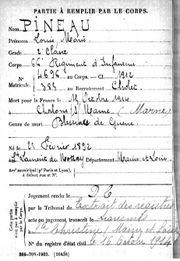 PARTIE À REMPLIR PAR LE CORPS.
Nom PINEAU
Prénoms Louis Marie
Grade 2e Classe
Corps 66e Régiment d'Infanterie
N° 4696 au Corps. — Cl. 1912
Matricule. 385 au Recrutement Cholet
Mort pour la France le 17 Octobre 1914
à Chalons s/ Marne (Marne)
Genre de mort Blessures de Guerre
Né le 21 Février 1892
à St Laurent de Mottay Département Maine et Loire
Arrt municipal (pr Paris et Lyon),
à défaut rue et N°.
Jugement rendu le
par le Tribunal de Extrait des registres
acte ou jugement transcrit le
à Ste Christine (Maine et Loire)
N° du registre d'état civil